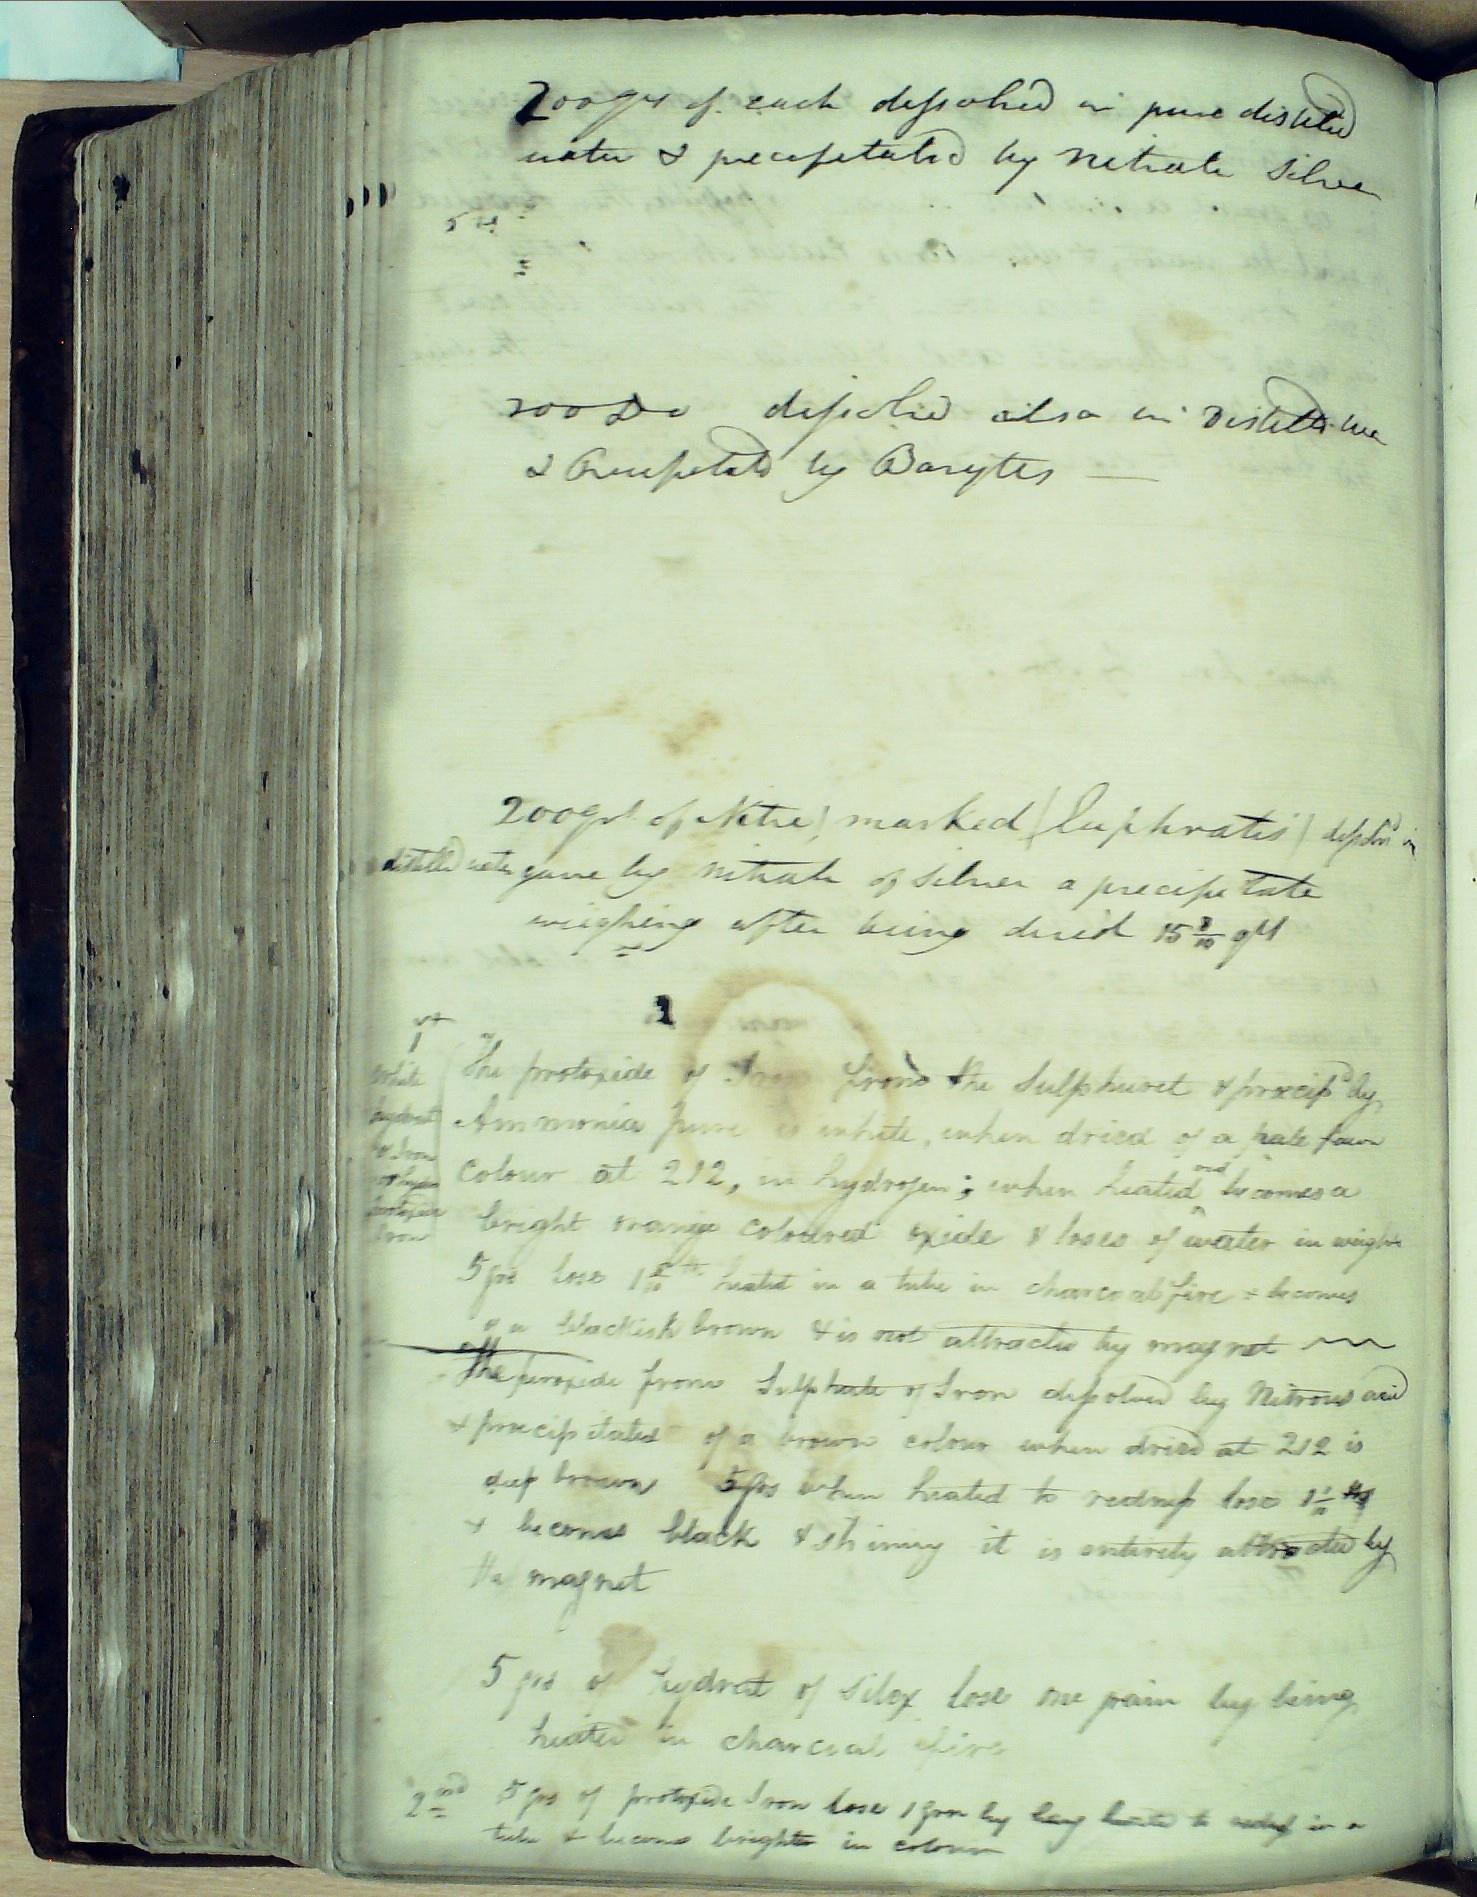 200grs of each dissolved in pure distilled
water & precipetated by Nitrate Silver
200 Do dissolved also in Distilld
& Precipetatd by Barytes —
200grs of Nitre marked (Euphrates) dissolvd in
distilled water gave by nitrate of Silver a precipetate
weighing after being dried 15 8/10 grs
1
1st
white
hydrat
of Iron
protoxide
Iron
The protoxide of Iron from the Sulphuret & precipd by
Ammonia pure is white, when dried of a pale fawn
colour at 212, in hydrogen; when heated red becomes a
bright orange coloured oxide & loses of water in weight
5 grs lose 1 heated in a tube in charcoal fire & becomes
of a blackish brown & is not attracted by magnet
The peroxide from Sulphate of Iron dissolved by Nitrous acid
& precipitated of a brown colour when dried at 212 is
deep brown 5 grs when heated to redness lose 1 1/10
& becomes black & shining it is entirely attracted by
the magnet
5 grs of hydrat of Silex lose one grain by being
heated in charcoal fire
2nd 5 grs of protoxide Iron lose 1 grn by being heated to redness in a
tube & becomes brighter in colour